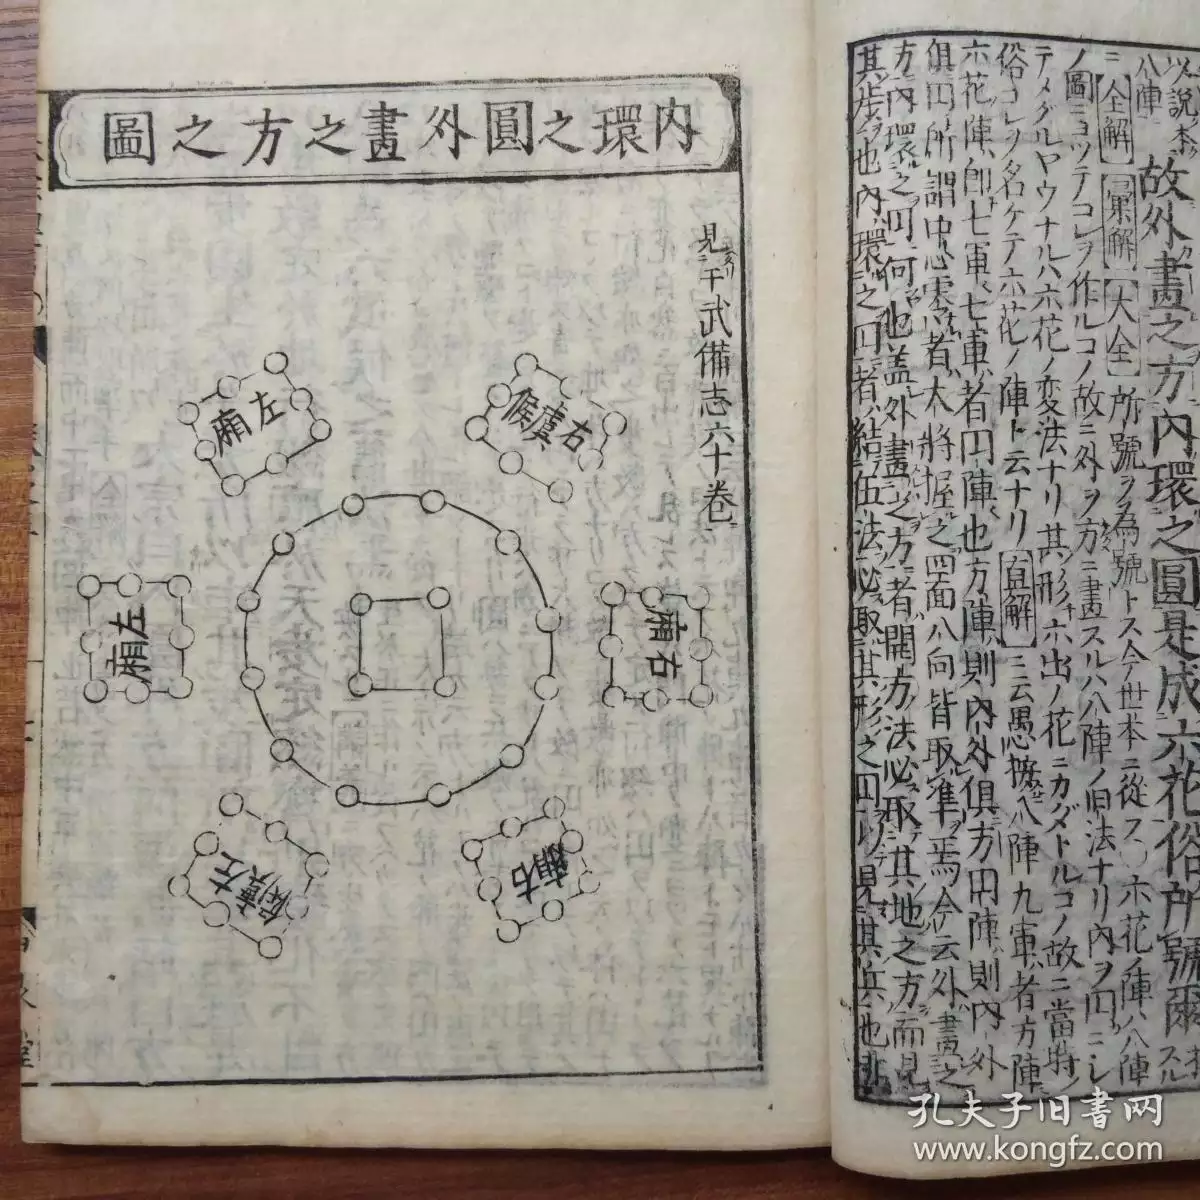 以說李
八陣
故外畫之方內環之圓是成六花俗所號爾
ニ全解彙解大全所號ヲ為號トス今世本ニ從ス○六花ノ陣ハ八陣
ノ圖ニヨツテコレヲ作ルコノ故ニ外ヲ方ニ畫スルハ八陣ノ旧法ナリ內ヲ円ニシ
テメグルヤウナルハ六花ノ変法ナリ其形六出ノ花ニカタドルコノ故ニ當時ノ
俗コレヲ名ケテ六花ノ陣ト云ナリ直解ニ云愚按八陣九軍者方陣
六花陣即七軍七軍者円陣也方陣則內外俱方円陣則內外
俱円所謂中心零者大將握之四面八向皆取準焉今云外畫之
方內環之円何也蓋外畫之方者開方法必取其地之方而見
其步也內環之円者結伍法必取其形之円以見其兵也非
內環之圓外畫之方之圖
見于武備志六十卷
左廂
右虞候
左廂
右廂
左虞候
右廂
孔夫子旧書网
www.kongfz.com